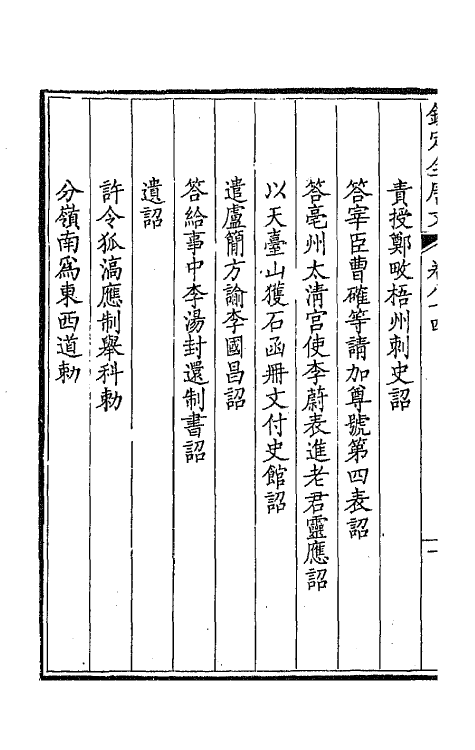 欽定全唐文 卷八十四 一
責授鄭畋梧州刺史詔
答宰臣曹確等請加尊號第四表詔
答亳州太清宮使李蔚表進老君靈應詔
以天臺山獲石函冊文付史館詔
遣盧簡方諭李國昌詔
答給事中李湯封還制書詔
遺詔
許令狐滈應制舉科勅
分嶺南爲東西道勅